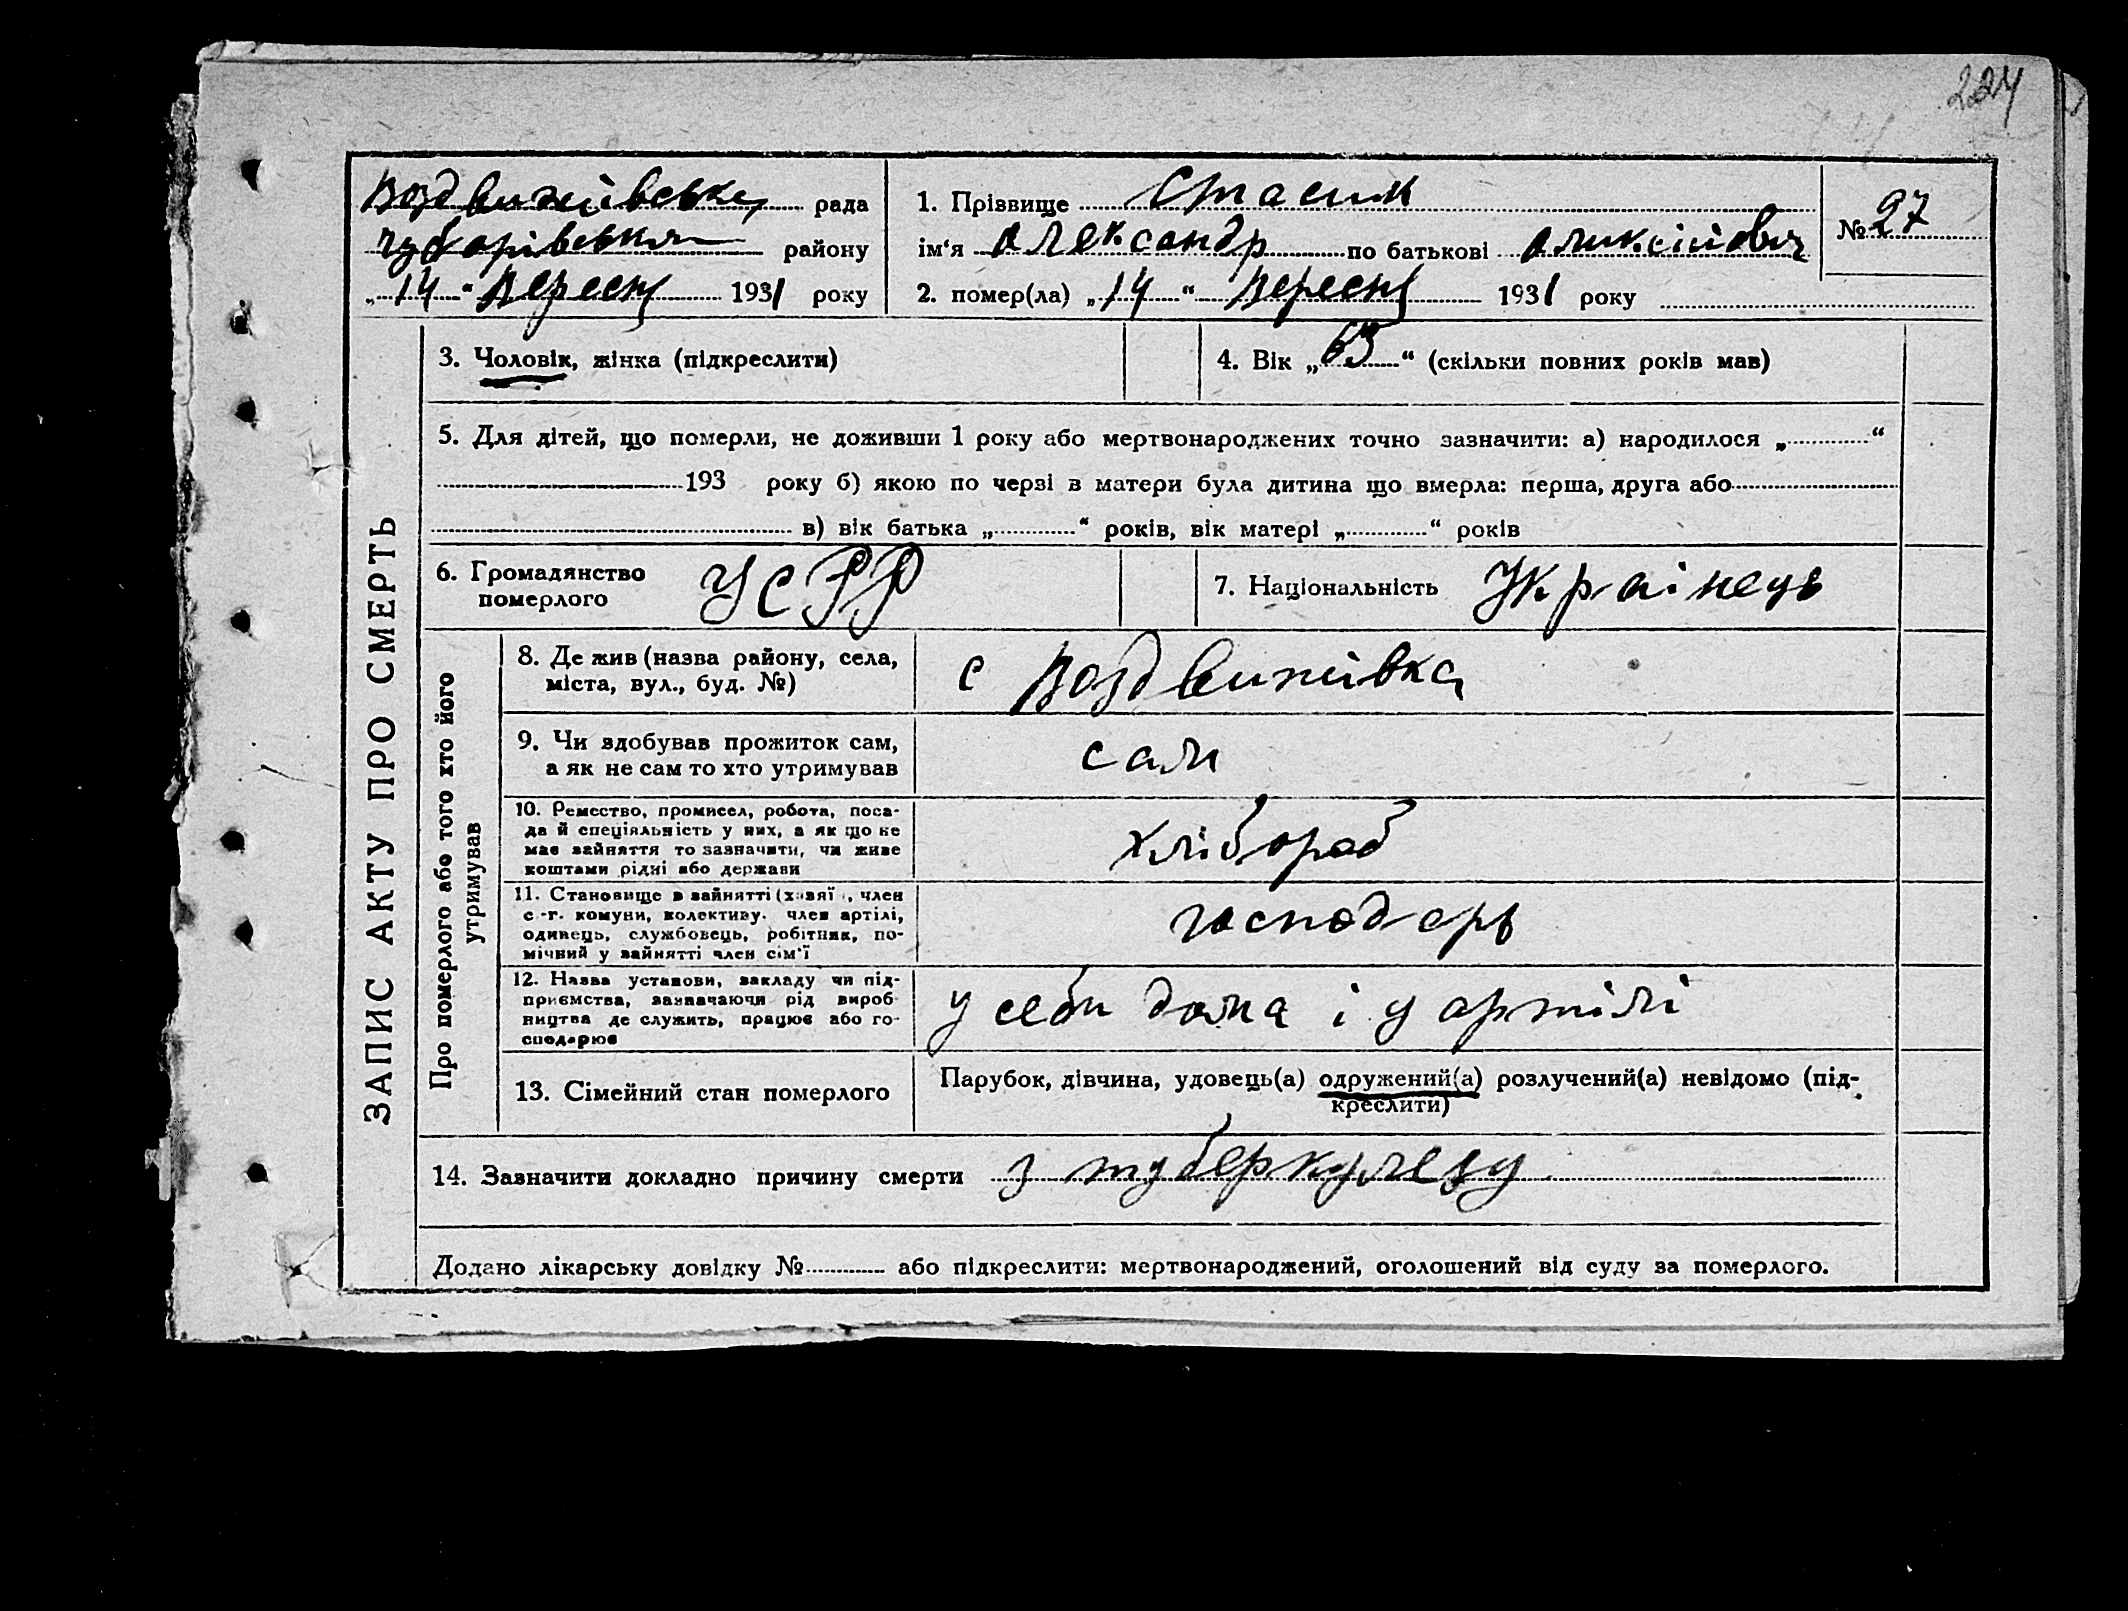 224
Воздвижівська рада
Чубарівськи району
„14“ Вересня 1931 року
1. Прізвище Стасик
ім‘я Александр по батькові Аликсійович
№ 27
2. помер(ла) „14“ Вересня 1931 року
3. Чоловік, жінка (підкреслити)
4. Вік „63“ (скільки повних років мав)
5. Для дітей, що померли, не доживши 1 року або мертвонароджених точно зазначити: а) народилося „ “
193 року б) якою по черзі в матери була дитина що вмерла: перша, друга або
в) вік батька „ “ років, вік матері „ “ років
6. Громадянство
померлого
УСРР
7. Національність Украінець
ЗАПИС АКТУ ПРО СМЕРТЬ
Про померлого або того хто його
утримував
8. Де жив (назва району, села,
міста, вул., буд. №)
с Воздвижівка
9. Чи здобував прожиток сам,
а як не сам то хто утримував
сам
10. Ремество, промисел, робота, поса-
да й спеціяльність у них, а як що не
має зайняття то зазначити, чи живе
коштами рідні або держави
хлібороб
11. Становище в зайнятті (хазяї , член
с.-г. комуни, колективу. член артілі,
одинець, службовець, робітник, по-
мічний у зайнятті член сім‘ї
господарь
12. Назва установи, закладу чи під-
приємства, зазначаючи рід вироб-
ництва де служить, працює або го-
сподарює
у себи дома і у артілі
13. Сімейний стан померлого
Парубок, дівчина, удовець(а) одружений(а) розлучений(а) невідомо (під-
креслити)
14. Зазначити докладно причину смерти з туберкулезу
Додано лікарську довідку № або підкреслити: мертвонароджений, оголошений від суду за померлого.